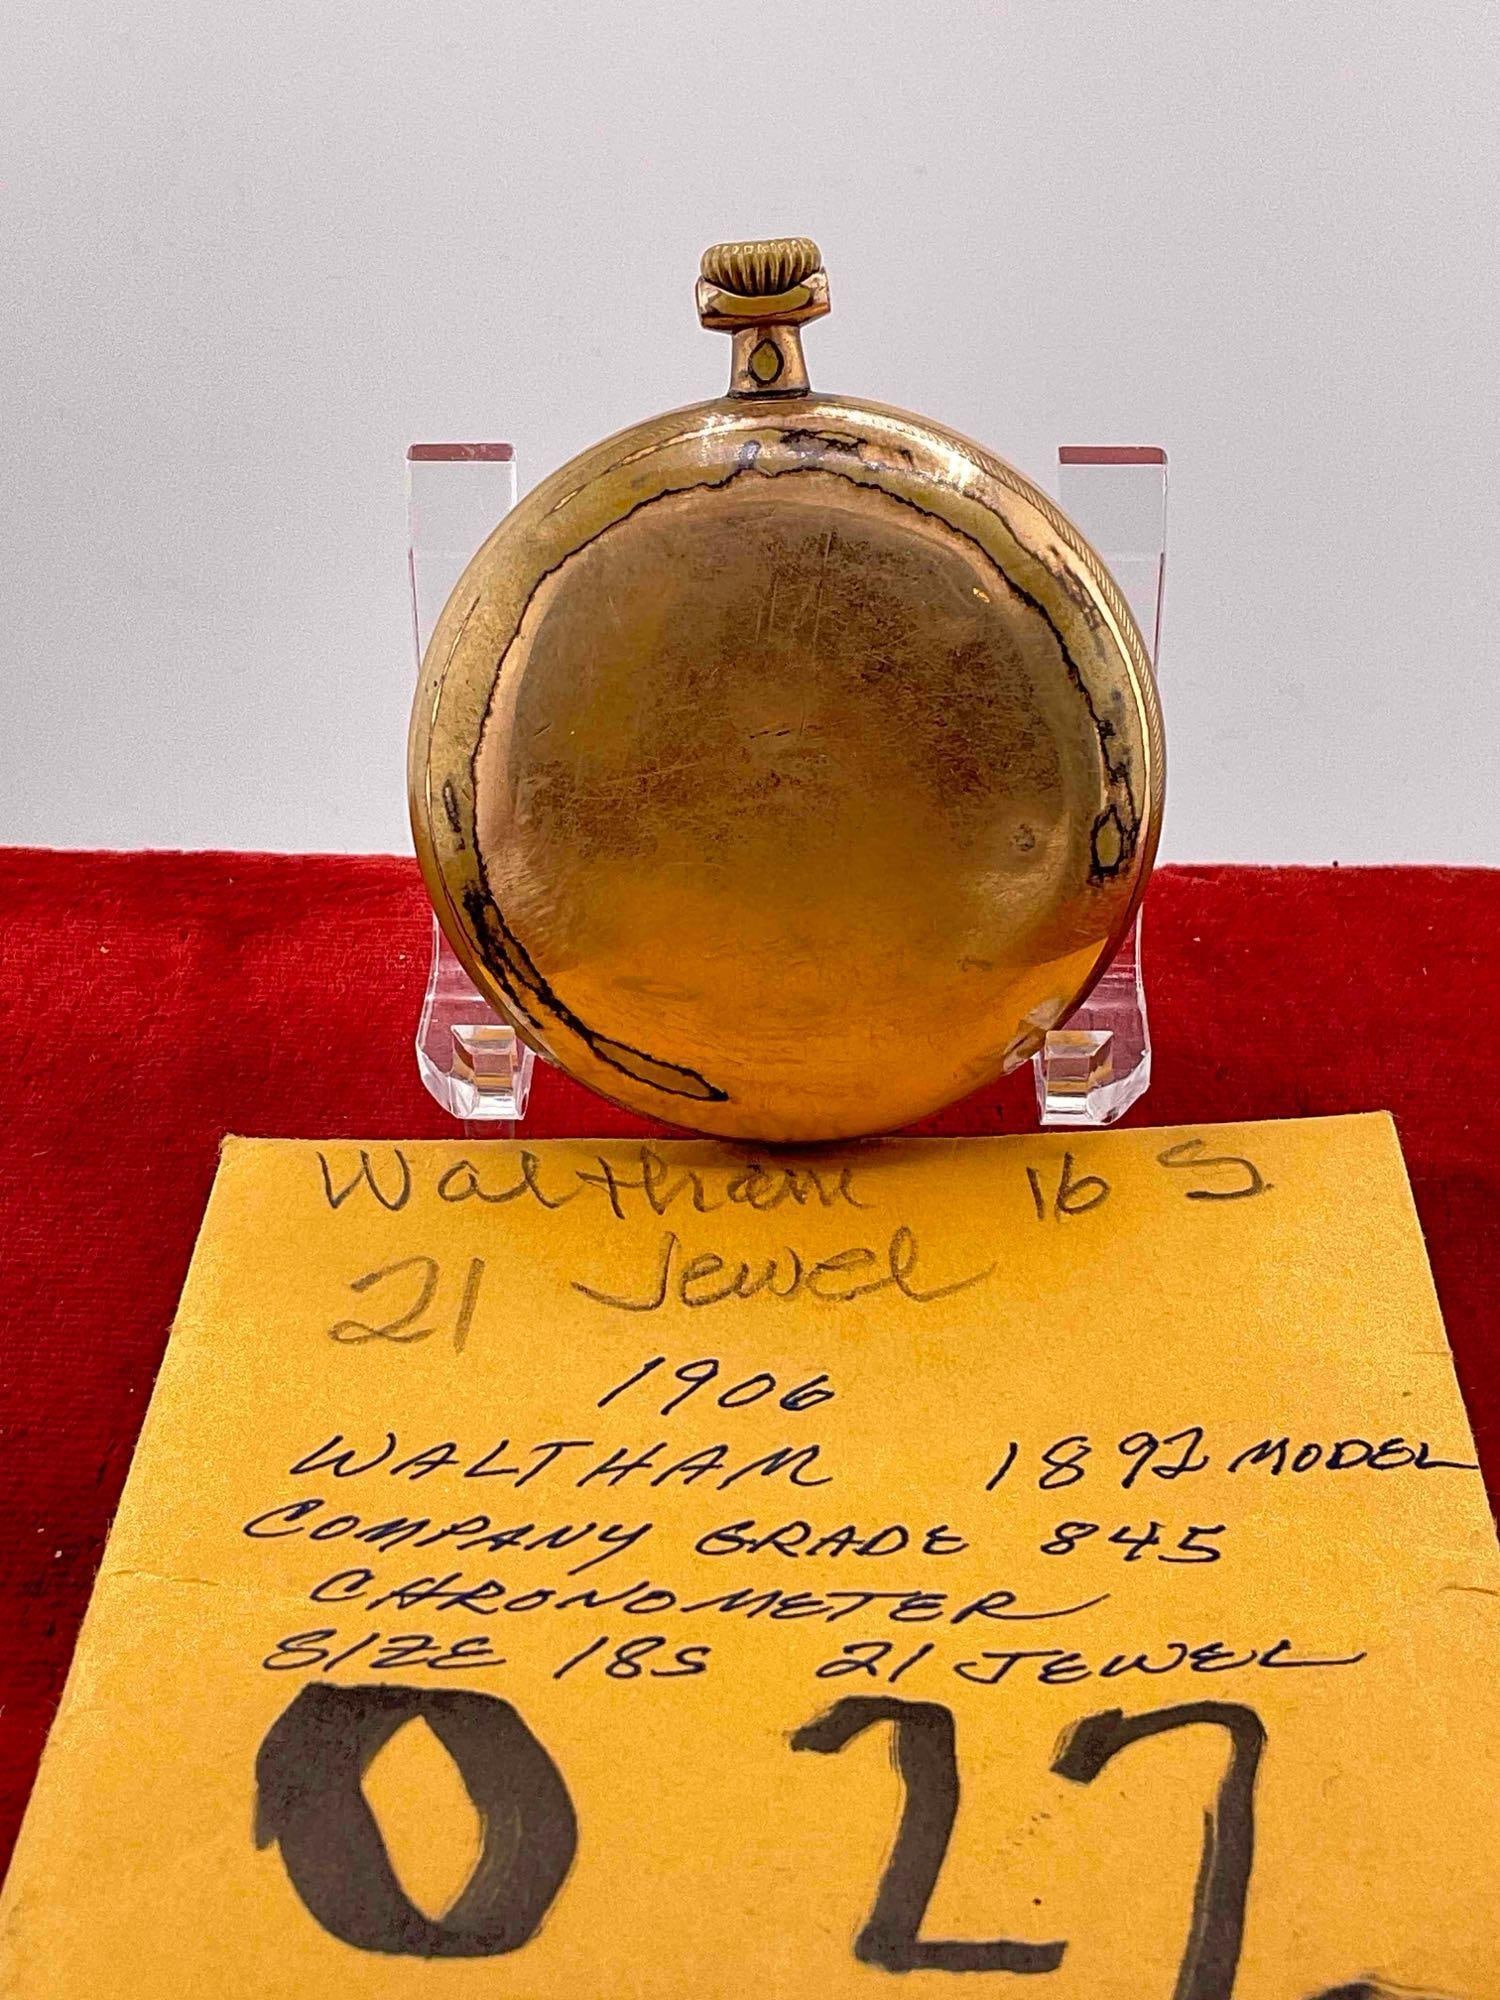 Waltham 16 S
21 Jewel
1906
WALTHAM 1892 MODEL
COMPANY GRADE 845
CHRONOMETER
SIZE 18S 21 JEWEL
0 27